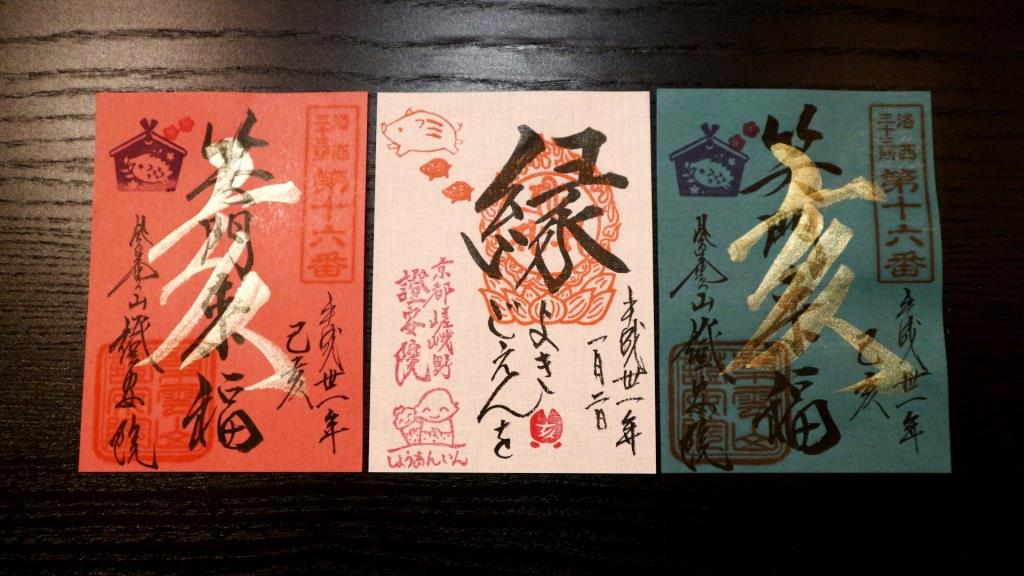 洛西
三十三所
第十六番
平成丗一年
己亥
笑門来福
亥
證安院
平成丗一年
一月二日
縁
よき
ごえんを
亥
京都嵯峨野
證安院
しょうあんいん
洛西
三十三所
第十六番
平成丗一年
己亥
笑門来福
亥
證安院